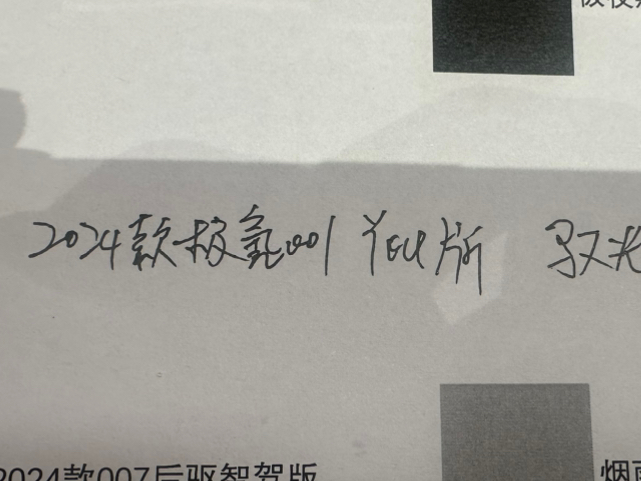 2024款极氪001 YOU版 驭光
2024款007后驱智驾版 烟雨